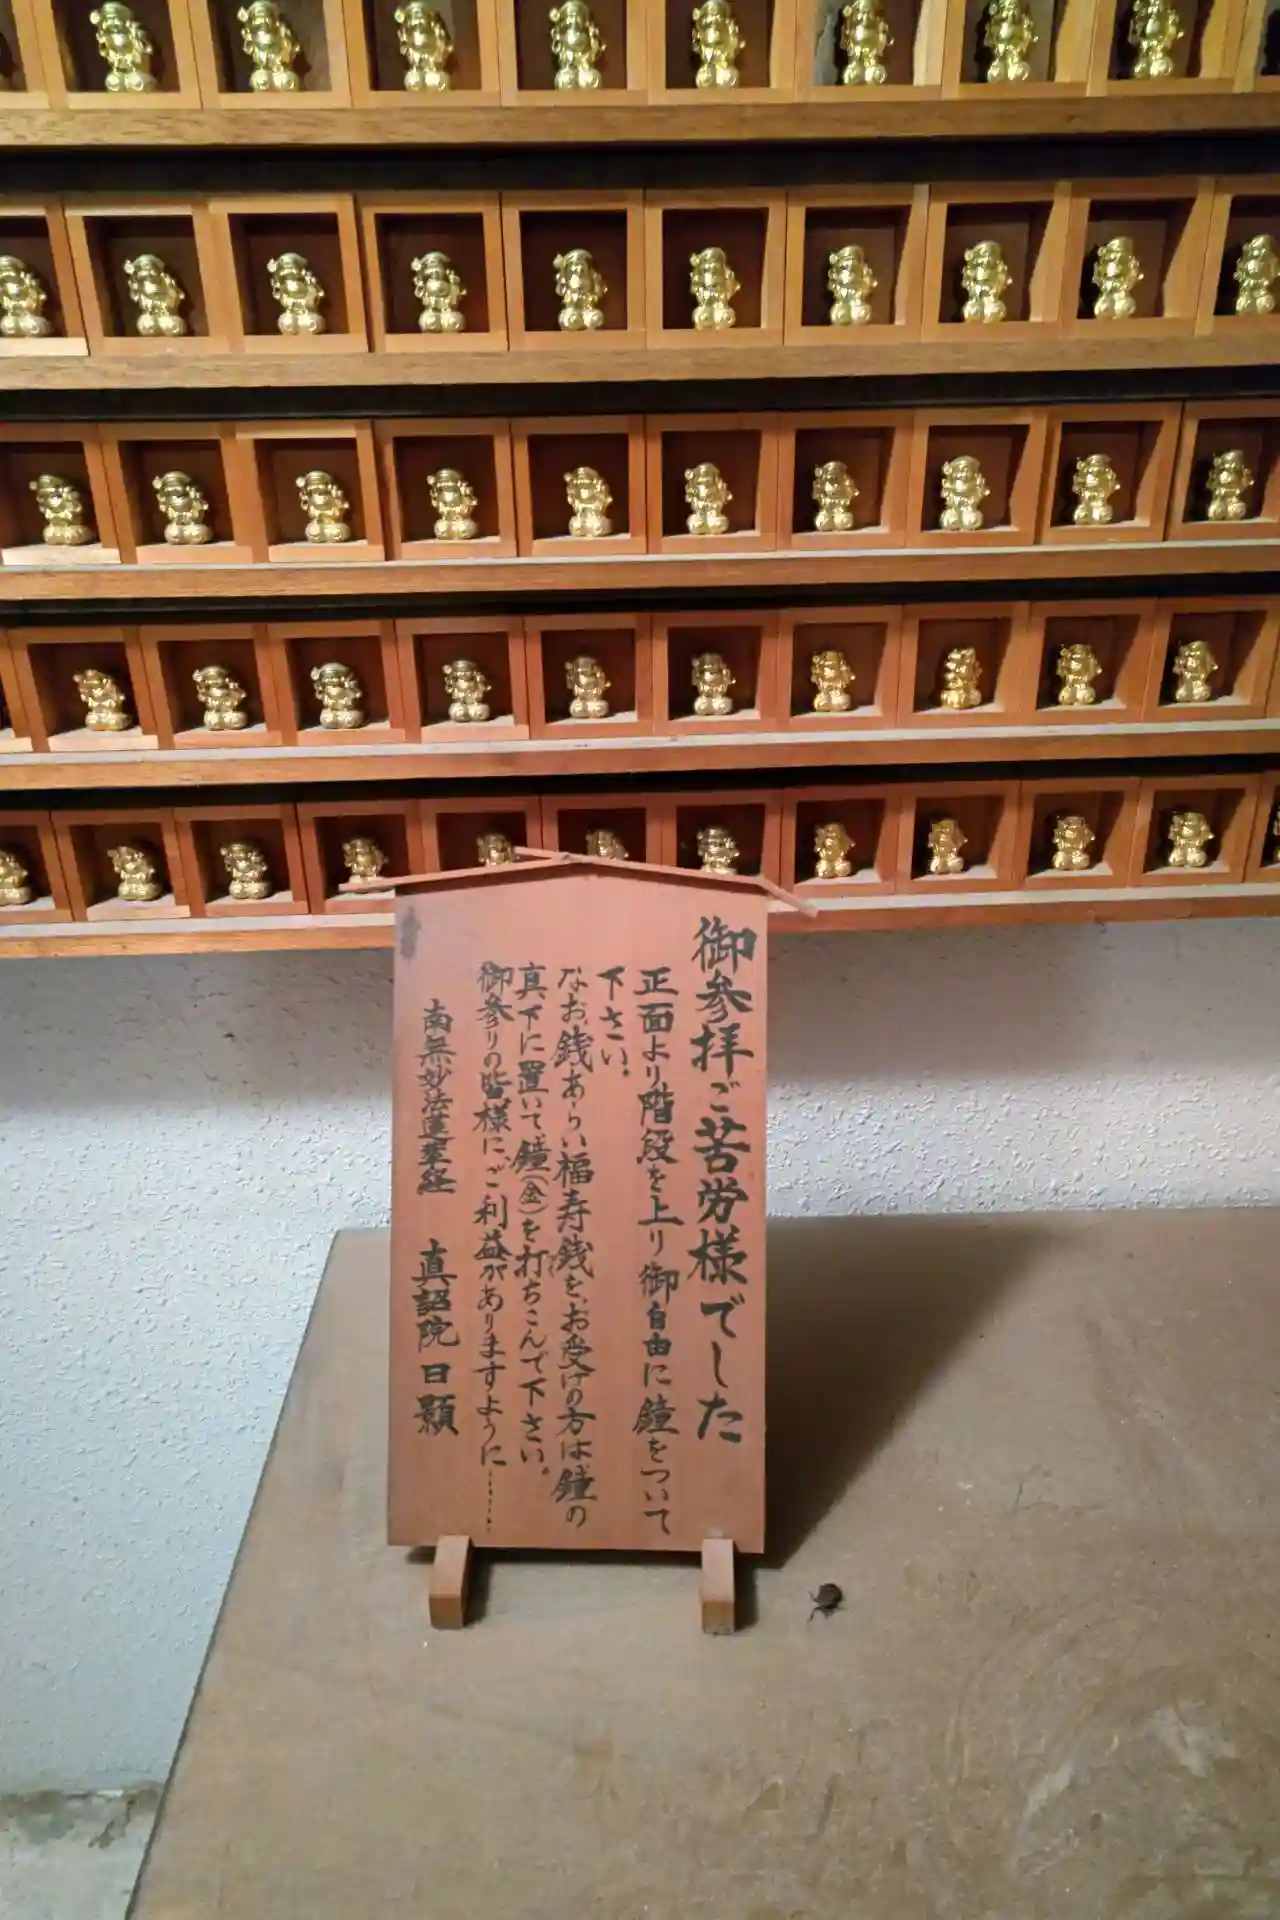 御参拝ご苦労様でした
正面より階段を上り御自由に鐘をついて
下さい。
なお、銭あらい福寿銭を、お受けの方は鐘の
真下に置いて、鐘(金)を打ちこんで下さい。
御参りの皆様に、ご利益がありますように……
南無妙法蓮華経 真詔院日顕